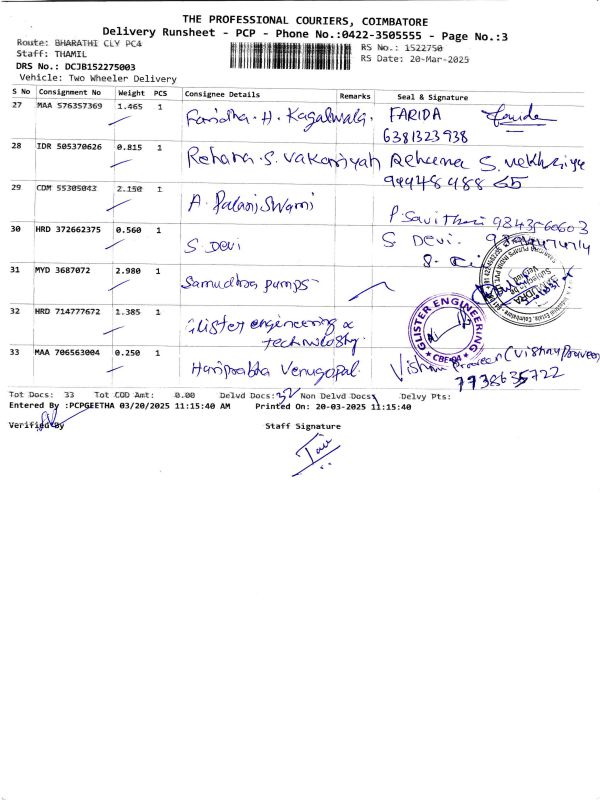 THE PROFESSIONAL COURIERS, COIMBATORE
Delivery Runsheet - PCP - Phone No.:0422-3505555 - Page No.:3
Route: BHARATHI CLY PC4 RS No.: 1522750
Staff: THAMIL RS Date: 20-Mar-2025
DRS No.: DCJB152275003
Vehicle: Two Wheeler Delivery
S No Consignment No Weight PCS Consignee Details Remarks Seal & Signature
27 MAA 576357369 1.465 1 Faridha.H.Kagalwala. FARIDA
6381323938
28 IDR 505370626 0.815 1 Rehana.S.Vakaniyah
29 CDM 55305043 2.150 1 A.Palaniswami
P.Savithri 9843560603
30 HRD 372662375 0.560 1 S.Devi S. Devi.
31 MYD 3687072 2.980 1 Samudhra pumps
32 HRD 714777672 1.385 1 Glister engineering & technology. GLISTER ENGINEERING CBE-04
33 MAA 706563004 0.250 1 Hariprabha Venugopal Vishnu Praveen (Vishnu Praveen)
7738635722
Tot Docs: 33 Tot COD Amt: 0.00 Delvd Docs: 32 Non Delvd Docs: 1 Delvy Pts:
Entered By :PCPGEETHA 03/20/2025 11:15:40 AM Printed On: 20-03-2025 11:15:40
Verified By Staff Signature